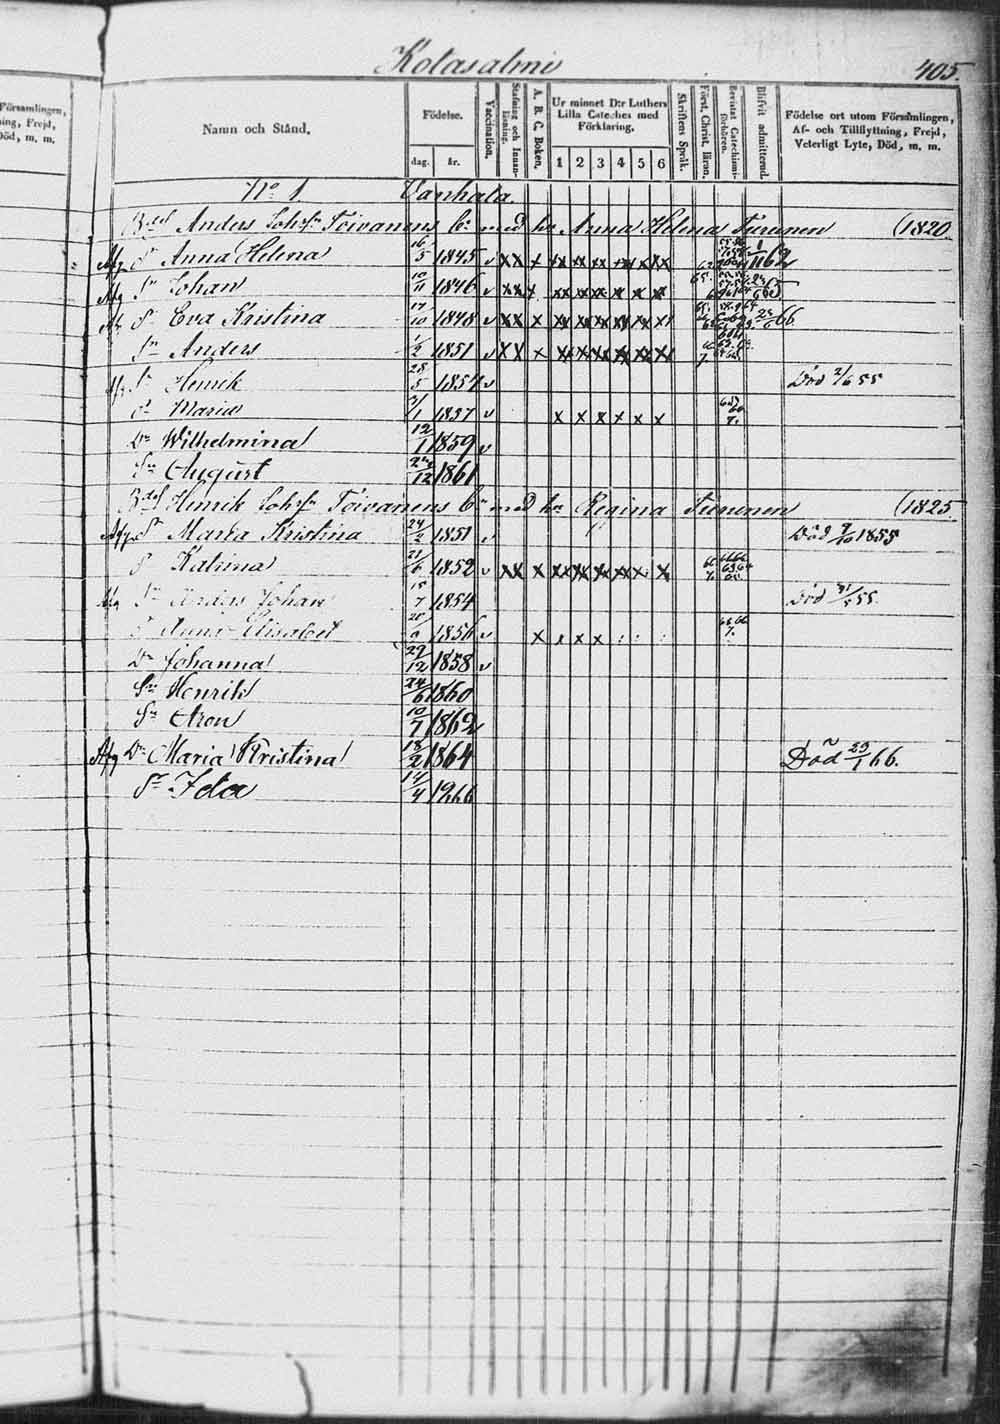 Kotasalmi
405.
Församlingen,
ning, Frejd,
Död, m. m.
Namn och Stånd.
Födelse.
dag. år.
Vaccination.
Stafning och Innanläsning.
A. B. C. Boken.
Ur minnet D:r Luthers Lilla Cateches med Förklaring.
1 2 3 4 5 6
Skriftens Språk.
Först. Christ. läran.
Bevistat Catechismiförhören.
Blifvit admitterad.
Födelse ort utom Församlingen,
Af- och Tillflyttning, Frejd,
Veterligt Lyte, Död, m. m.
No 1. Vanhala
Anders Toivanens med Anna Helena (1820
Afg Anna Helena 16/5 1845 v x x x x x x x x x 62
Afg Sn Johan 10/11 1846 v x x x x x x x x x 65
Eva Kristina 17/10 1848 v x x x x x x x x x 66
Sn Anders 1/2 1851 v x x x x x x x x x
Henrik 28/5 1854 v Död 2/6 55
Maria 1857 v x x x x x x
Dr Wilhelmina 12/1 1859 v
Sn August 12 1861
Henrik Toivanens med Regina (1825
Afg Maria Kristina 24/2 1851 v Död 9/10 1855
Katima 21/6 1852 v x x x x x x x x x
Sn Anders Johan 15/7 1854 Död 55
Anna Elisabet 1856 v x x x x
Dr Johanna 29/12 1858 v
Sn Henrik 24/6 1860
Sn Aron 10/7 1862
Afg Dr Maria Kristina 18/2 1864 Död 23/1 66.
Ida 14/4 1866